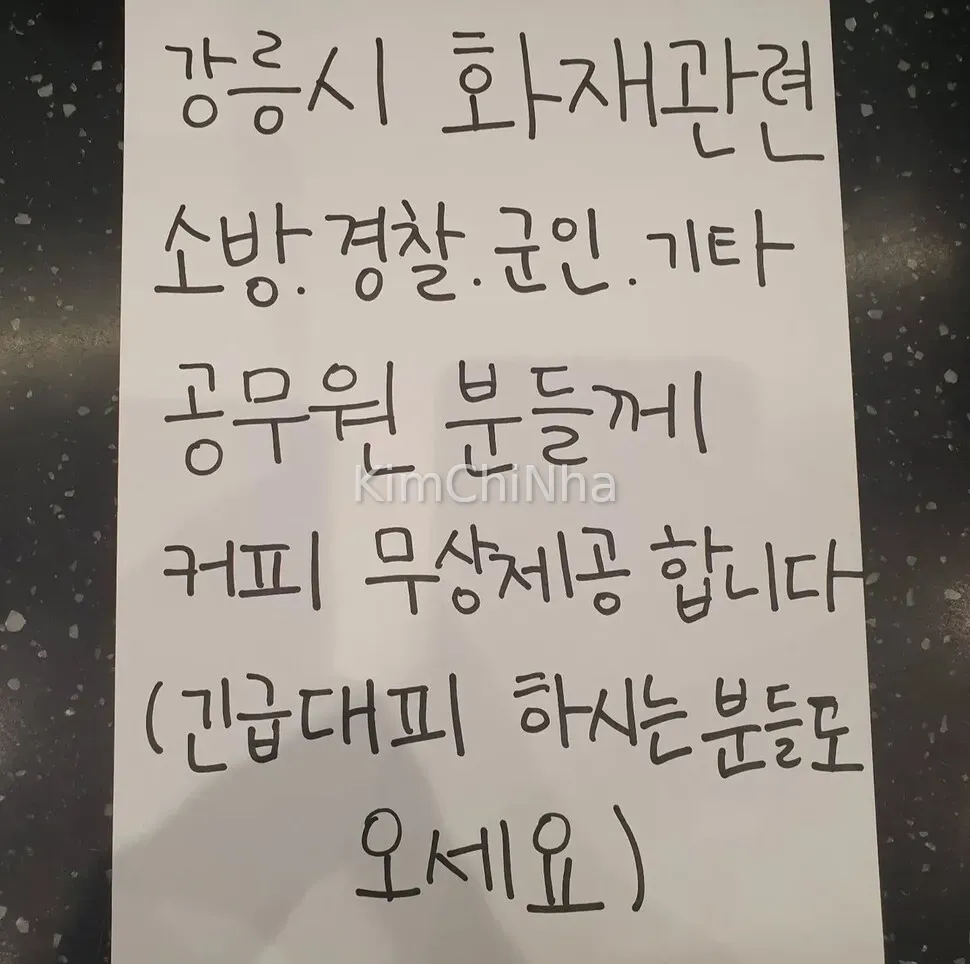 강릉시 화재관련
소방.경찰.군인.기타
공무원 분들께
KimChiNha
커피 무상제공 합니다
(긴급대피 하시는분들도
오세요)